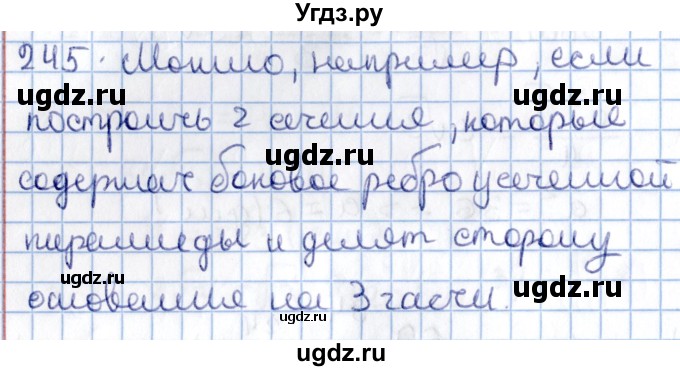 Угдз.ру
245. Можно, например, если
ugdz.ru ugdz.ru
построить 2 сечения, которые
ugdz.ru
содержат боковое ребро усеченной
ugdz.ru ugdz.ru
пирамиды и делят сторону
ugdz.ru
основания на 3 части.
ugdz.ru ugdz.ru
ugdz.ru